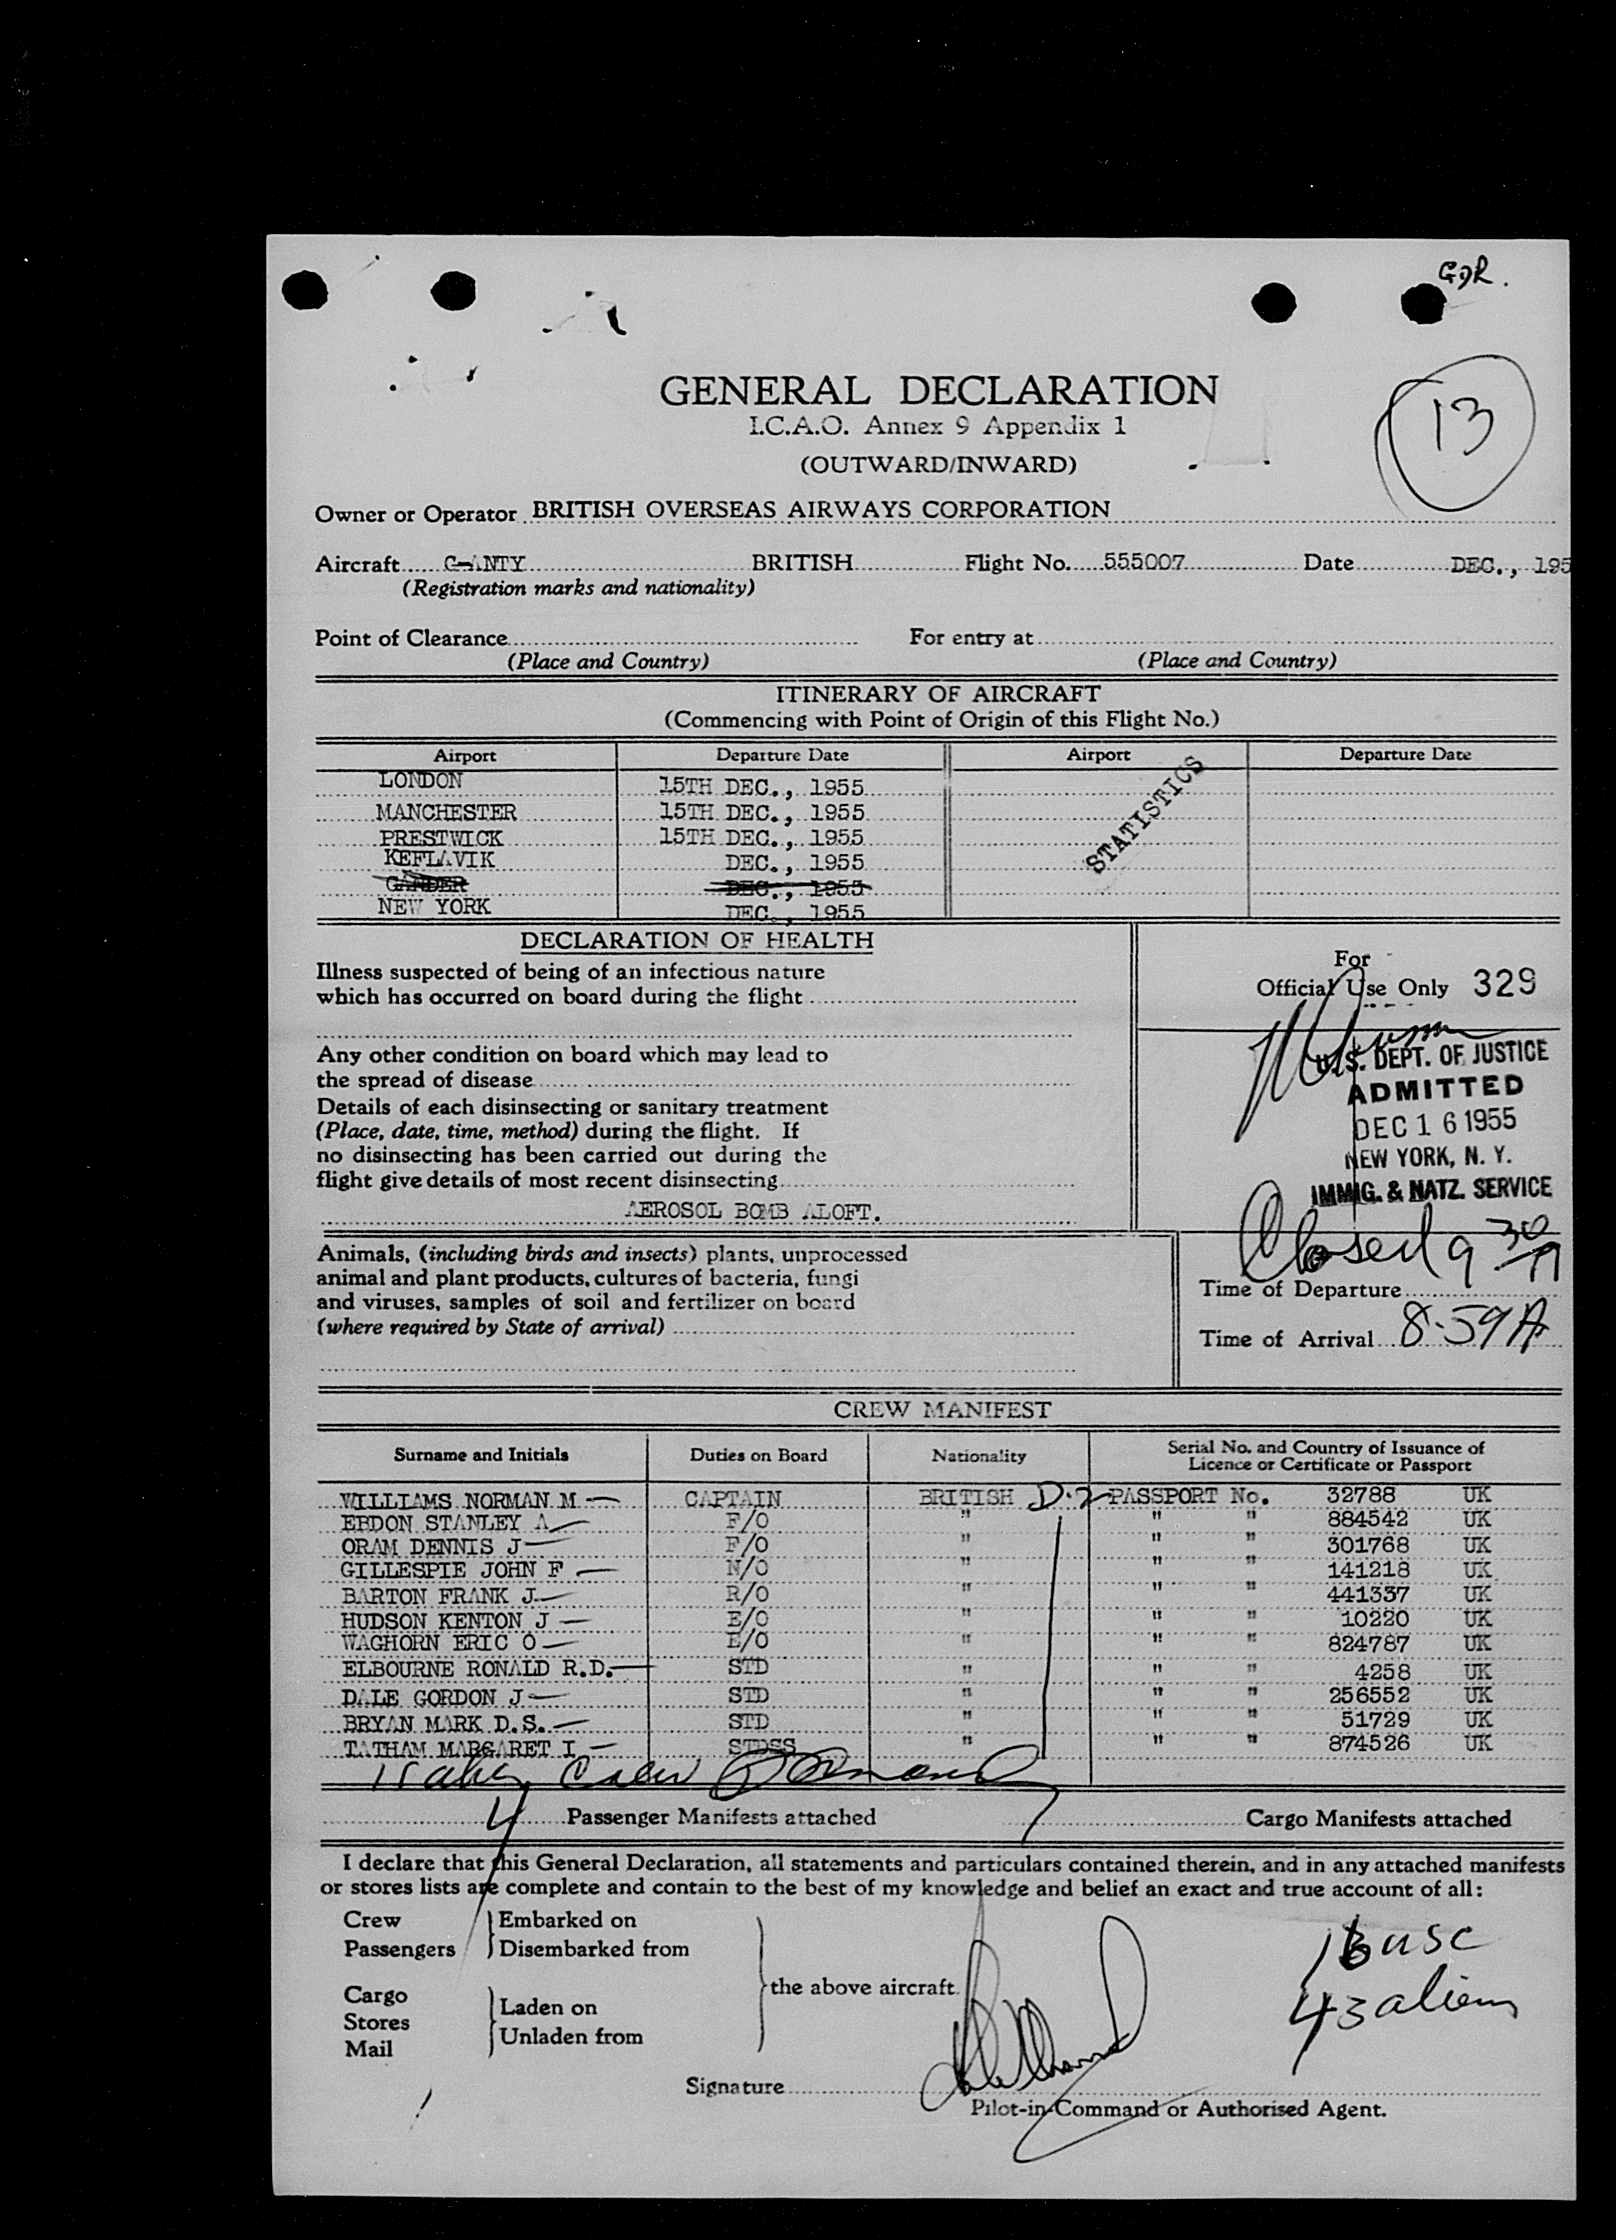 GENERAL DECLARATION
I.C.A.O. Annex 9 Appendix 1
(OUTWARD/INWARD)
13
Owner or Operator BRITISH OVERSEAS AIRWAYS CORPORATION
Aircraft G-ANTY BRITISH Flight No. 555007 Date DEC., 195
(Registration marks and nationality)
Point of Clearance For entry at
(Place and Country) (Place and Country)
ITINERARY OF AIRCRAFT
(Commencing with Point of Origin of this Flight No.)
Airport Departure Date Airport Departure Date
LONDON 15TH DEC., 1955
MANCHESTER 15TH DEC., 1955
PRESTWICK 15TH DEC., 1955
KEFLAVIK DEC., 1955
GANDER DEC., 1955
NEW YORK DEC., 1955
STATISTICS
DECLARATION OF HEALTH
Illness suspected of being of an infectious nature
which has occurred on board during the flight
Any other condition on board which may lead to
the spread of disease
Details of each disinsecting or sanitary treatment
(Place, date, time, method) during the flight. If
no disinsecting has been carried out during the
flight give details of most recent disinsecting
AEROSOL BOMB ALOFT.
For
Official Use Only 329
U.S. DEPT. OF JUSTICE
ADMITTED
DEC 16 1955
NEW YORK, N. Y.
IMMIG. & NATZ. SERVICE
Closed 9 30 A
Animals, (including birds and insects) plants, unprocessed
animal and plant products, cultures of bacteria, fungi
and viruses, samples of soil and fertilizer on board
(where required by State of arrival)
Time of Departure
Time of Arrival 8.59A
CREW MANIFEST
Surname and Initials Duties on Board Nationality Serial No. and Country of Issuance of
Licence or Certificate or Passport
WILLIAMS NORMAN M CAPTAIN BRITISH D.2 PASSPORT No. 32788 UK
EBDON STANLEY A F/O " " " 884542 UK
ORAM DENNIS J F/O " " " 301768 UK
GILLESPIE JOHN F N/O " " " 141218 UK
BARTON FRANK J. R/O " " " 441337 UK
HUDSON KENTON J E/O " " " 10220 UK
WAGHORN ERIC O E/O " " " 824787 UK
ELBOURNE RONALD R.D. STD " " " 4258 UK
DALE GORDON J STD " " " 256552 UK
BRYAN MARK D.S. STD " " " 51729 UK
TATHAM MARGARET I STDSS " " " 874526 UK
Crew
4 Passenger Manifests attached Cargo Manifests attached
I declare that this General Declaration, all statements and particulars contained therein, and in any attached manifests
or stores lists are complete and contain to the best of my knowledge and belief an exact and true account of all:
Crew Embarked on
Passengers Disembarked from
the above aircraft.
Cargo Laden on
Stores
Mail Unladen from
usc
43 aliens
Signature
Pilot-in-Command or Authorised Agent.